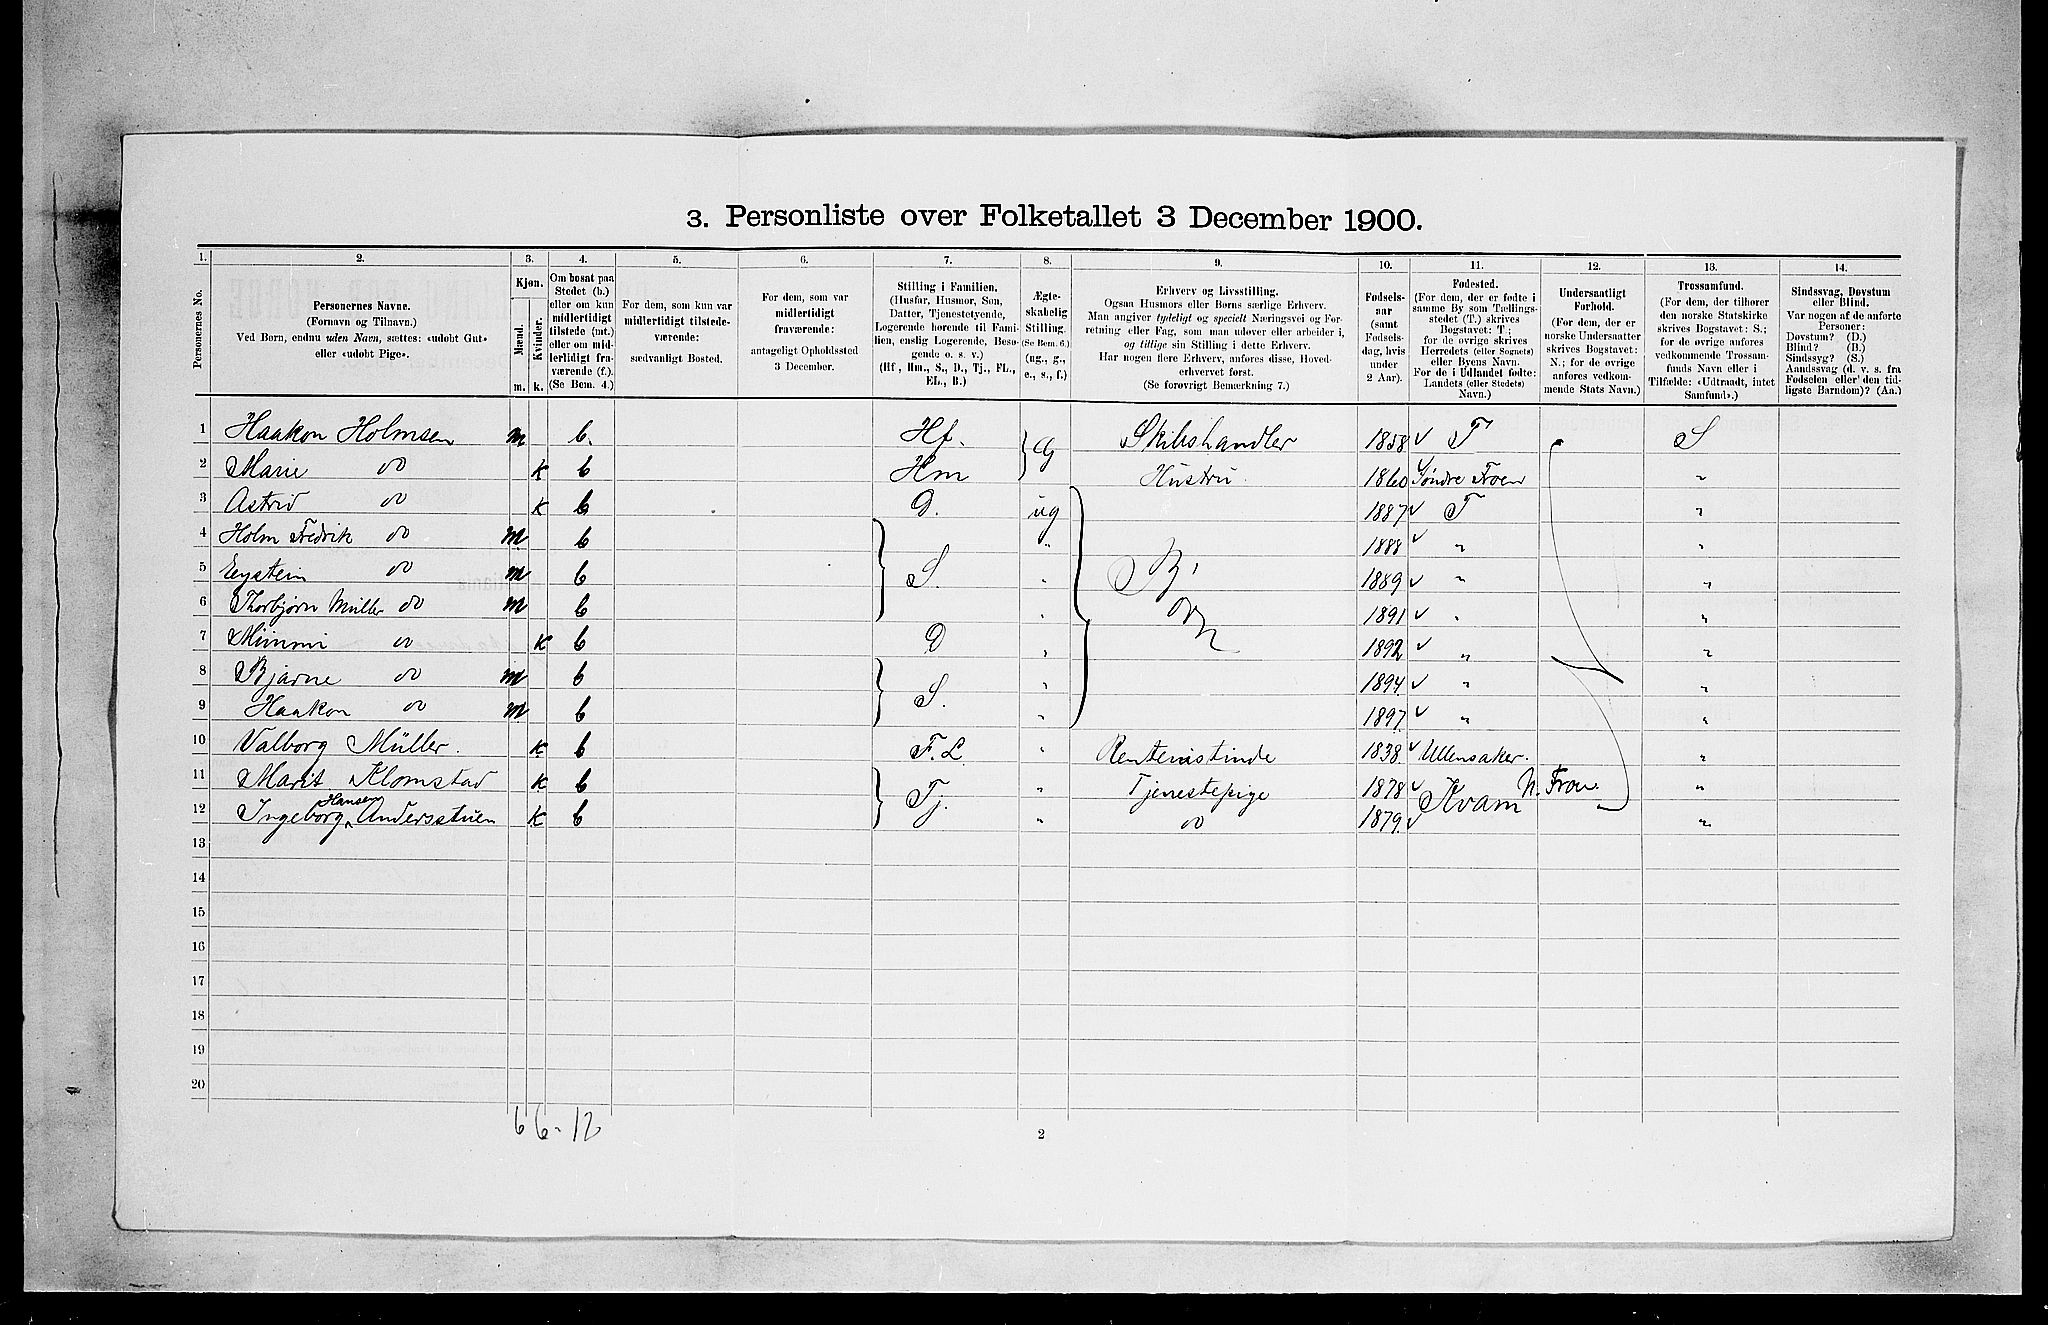 3. Personliste over Folketallet 3 December 1900.
1. 2. 3. 4. 5. 6. 7. 8. 9. 10. 11. 12. 13. 14.
Personernes No.
Personernes Navne.
(Fornavn og Tilnavn.)
Ved Børn, endnu uden Navn, sættes: «udøbt Gut»
eller «udøbt Pige».
Kjøn.
Mænd.
Kvinder.
m. k.
Om bosat paa
Stedet (b.)
eller om kun
midlertidigt
tilstede (mt.)
eller om mid-
lertidigt fra-
værende (f.).
(Se Bem. 4.)
For dem, som kun var
midlertidigt tilstede-
værende:
sædvanligt Bosted.
For dem, som var
midlertidigt
fraværende:
antageligt Opholdssted
3 December.
Stilling i Familien.
(Husfar, Husmor, Søn,
Datter, Tjenestetyende,
Logerende hørende til Fami-
lien, enslig Logerende, Besø-
gende o. s. v.)
(Hf., Hm., S., D., Tj., FL.,
EL., B.)
Ægte-
skabelig
Stilling.
(Se Bem. 6.)
(ug., g.,
e., s., f.)
Erhverv og Livsstilling.
Ogsaa Husmors eller Børns særlige Erhverv.
Man angiver tydeligt og specielt Næringsvei og For-
retning eller Fag, som man udøver eller arbeider i,
og tillige sin Stilling i dette Erhverv.
Har nogen flere Erhverv, anføres disse, Hoved-
erhvervet først.
(Se forøvrigt Bemærkning 7.)
Fødsels-
aar
(samt
Fødsels-
dag, hvis
under
2 Aar).
Fødested.
(For dem, der er fødte i
samme By som Tællings-
stedet (T.) skrives
Bogstavet: T;
for de øvrige skrives
Herredets (eller Sognets)
eller Byens Navn.
For de i Udlandet fødte:
Landets (eller Stedets)
Navn.)
Undersaatligt
Forhold.
(For dem, der er
norske Undersaatter
skrives Bogstavet:
N.; for de øvrige
anføres vedkom-
mende Stats Navn.)
Trossamfund.
(For dem, der tilhører
den norske Statskirke
skrives Bogstavet: S.;
for de øvrige anføres
vedkommende Trossam-
funds Navn eller i
Tilfælde: «Udtraadt, intet
Samfund».)
Sindssvag, Døvstum
eller Blind.
Var nogen af de anførte
Personer:
Døvstum? (D.)
Blind? (B.)
Sindssyg? (S.)
Aandssvag (d. v. s. fra
Fødselen eller den tid-
ligste Barndom)? (Aa.)
1 Haakon Holmsen m b. Hf. G Skibshandler 1858 T S
2 Marie do k b Hm Hustru 1860 Søndre Froen "
3 Astrid do k b D. ug 1887 T "
4 Holm Fredrik do m b " 1888 " "
5 Eystein do m b S. " Børn 1889 " "
6 Thorbjørn Müller do m b " 1891 " "
7 Mimmi do k b D " 1892 " "
8 Bjarne do m b " 1894 " "
9 Haakon do m b S. " 1897 " "
10 Valborg Müller. k b F.L. " Rentenistinde 1838 Ullensaker. "
11 Marit Klomstad k b " Tjenestepige 1878 N. Fron. "
12 Ingeborg Hansen Andersstuen k b Tj. " do 1879 Kvam "
13
14
15
16
17
18
19
20
6 6 - 12
2